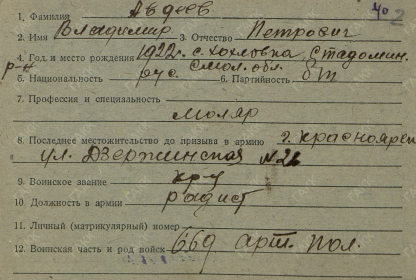 40 2
1. Фамилия Авдеев
2. Имя Владимир 3. Отчество Петрович
4. Год и место рождения 1922г. с. Хохловка, Стадомин.
р-н Смол. обл.
5. Национальность рус. 6. Партийность б/п
7. Профессия и специальность
моляр
8. Последнее местожительство до призыва в армию г. Красноярск
ул. Дзержинская №26
9. Воинское звание кр-ц
10. Должность в армии радист
11. Личный (матрикулярный) номер
12. Воинская часть и род войск 669 арт. пол.